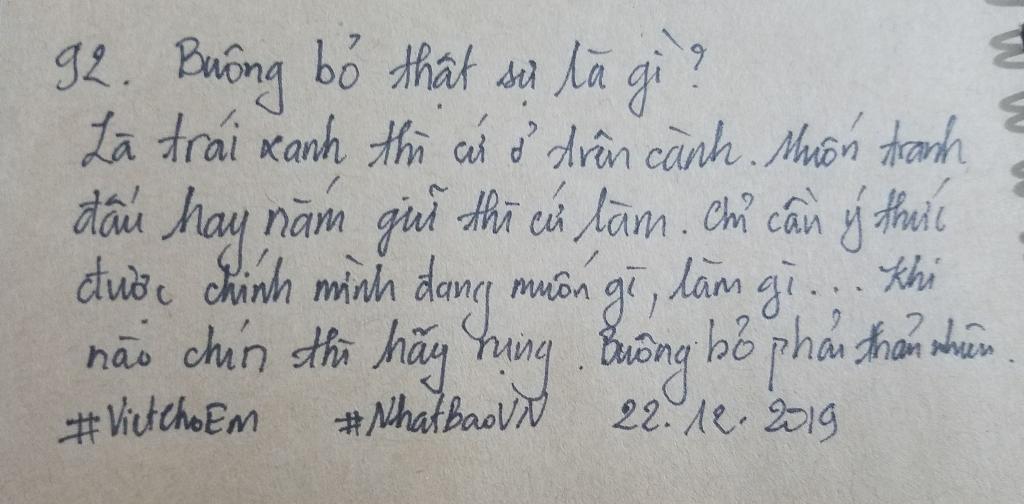 92. Buông bỏ thật sự là gì?
Là trái xanh thì cứ ở trên cành. Muốn tranh
đấu hay nắm giữ thì cứ làm. Chỉ cần ý thức
được chính mình đang muốn gì, làm gì... Khi
nào chín thì hãy rụng. Buông bỏ phải thản nhiên.
#VietchoEm #NhatBaoVN 22.12.2019